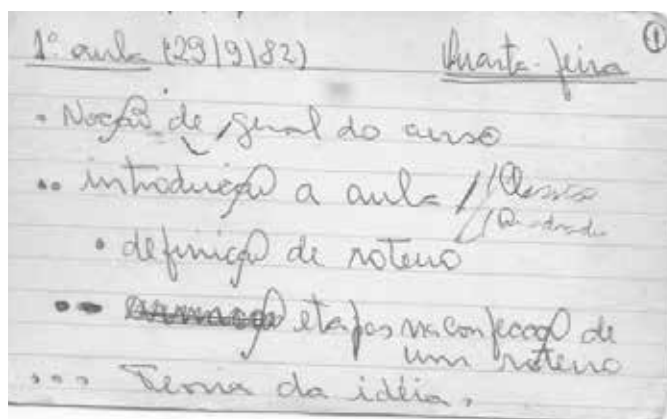 1º aula (29/9/82) Quarta-feira ①
• Noção de geral do curso
•• introdução a aula // Classico
// Quadrado
• definição de roteiro
•• etapas na confecção de
um roteiro
••• Teoria da idéia.